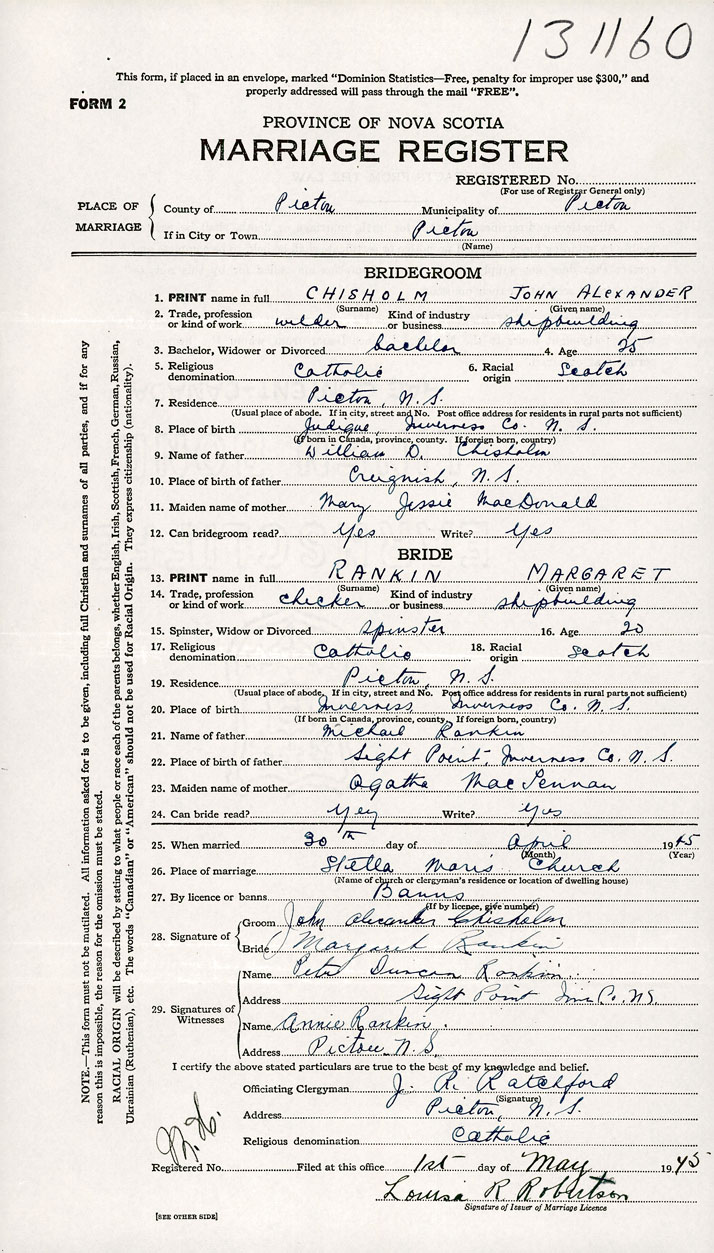 131160
This form, if placed in an envelope, marked "Dominion Statistics—Free, penalty for improper use $300," and
properly addressed will pass through the mail "FREE".
FORM 2
PROVINCE OF NOVA SCOTIA
MARRIAGE REGISTER
REGISTERED No.
(For use of Registrar General only)
PLACE OF MARRIAGE
County of Picton Municipality of Picton
If in City or Town Picton
(Name)
BRIDEGROOM
1. PRINT name in full CHISHOLM JOHN ALEXANDER
(Surname) (Given name)
2. Trade, profession or kind of work welder Kind of industry or business shipbuilding
3. Bachelor, Widower or Divorced bachelor 4. Age 25
5. Religious denomination Catholic 6. Racial origin Scotch
7. Residence Picton, N. S.
(Usual place of abode. If in city, street and No. Post office address for residents in rural parts not sufficient)
8. Place of birth Judique, Inverness Co. N. S.
(If born in Canada, province, county. If foreign born, country)
9. Name of father William D. Chisholm
10. Place of birth of father Creignish, N. S.
11. Maiden name of mother Mary Jessie MacDonald
12. Can bridegroom read? Yes Write? Yes
BRIDE
13. PRINT name in full RANKIN MARGARET
(Surname) (Given name)
14. Trade, profession or kind of work checker Kind of industry or business shipbuilding
15. Spinster, Widow or Divorced spinster 16. Age 20
17. Religious denomination Catholic 18. Racial origin Scotch
19. Residence Picton, N. S.
(Usual place of abode. If in city, street and No. Post office address for residents in rural parts not sufficient)
20. Place of birth Inverness, Inverness Co. N. S.
(If born in Canada, province, county. If foreign born, country)
21. Name of father Michael Rankin
22. Place of birth of father Sight Point, Inverness Co. N. S.
23. Maiden name of mother Agatha MacLennan
24. Can bride read? Yes Write? Yes
25. When married 30th day of April 1945
(Month) (Year)
26. Place of marriage Stella Maris Church
(Name of church or clergyman's residence or location of dwelling house)
27. By licence or banns Banns
(If by licence, give number)
28. Signature of
Groom John Alexander Chisholm
Bride Margaret Rankin
29. Signatures of Witnesses
Name Peter Duncan Rankin
Address Sight Point Inv. Co. N.S.
Name Annie Rankin
Address Pictou N.S.
I certify the above stated particulars are true to the best of my knowledge and belief.
Officiating Clergyman J. R. Ratchford
(Signature)
Address Picton, N. S.
Religious denomination Catholic
Registered No. Filed at this office 1st day of May 1945
Louisa R Robertson
Signature of Issuer of Marriage Licence
[SEE OTHER SIDE]
NOTE.—This form must not be mutilated. All information asked for is to be given, including full Christian and surnames of all parties, and if for any
reason this is impossible, the reason for the omission must be stated.
RACIAL ORIGIN will be described by stating to what people or race each of the parents belongs, whether English, Irish, Scottish, French, German, Russian,
Ukrainian (Ruthenian), etc. The words "Canadian" or "American" should not be used for Racial Origin. They express citizenship (nationality).